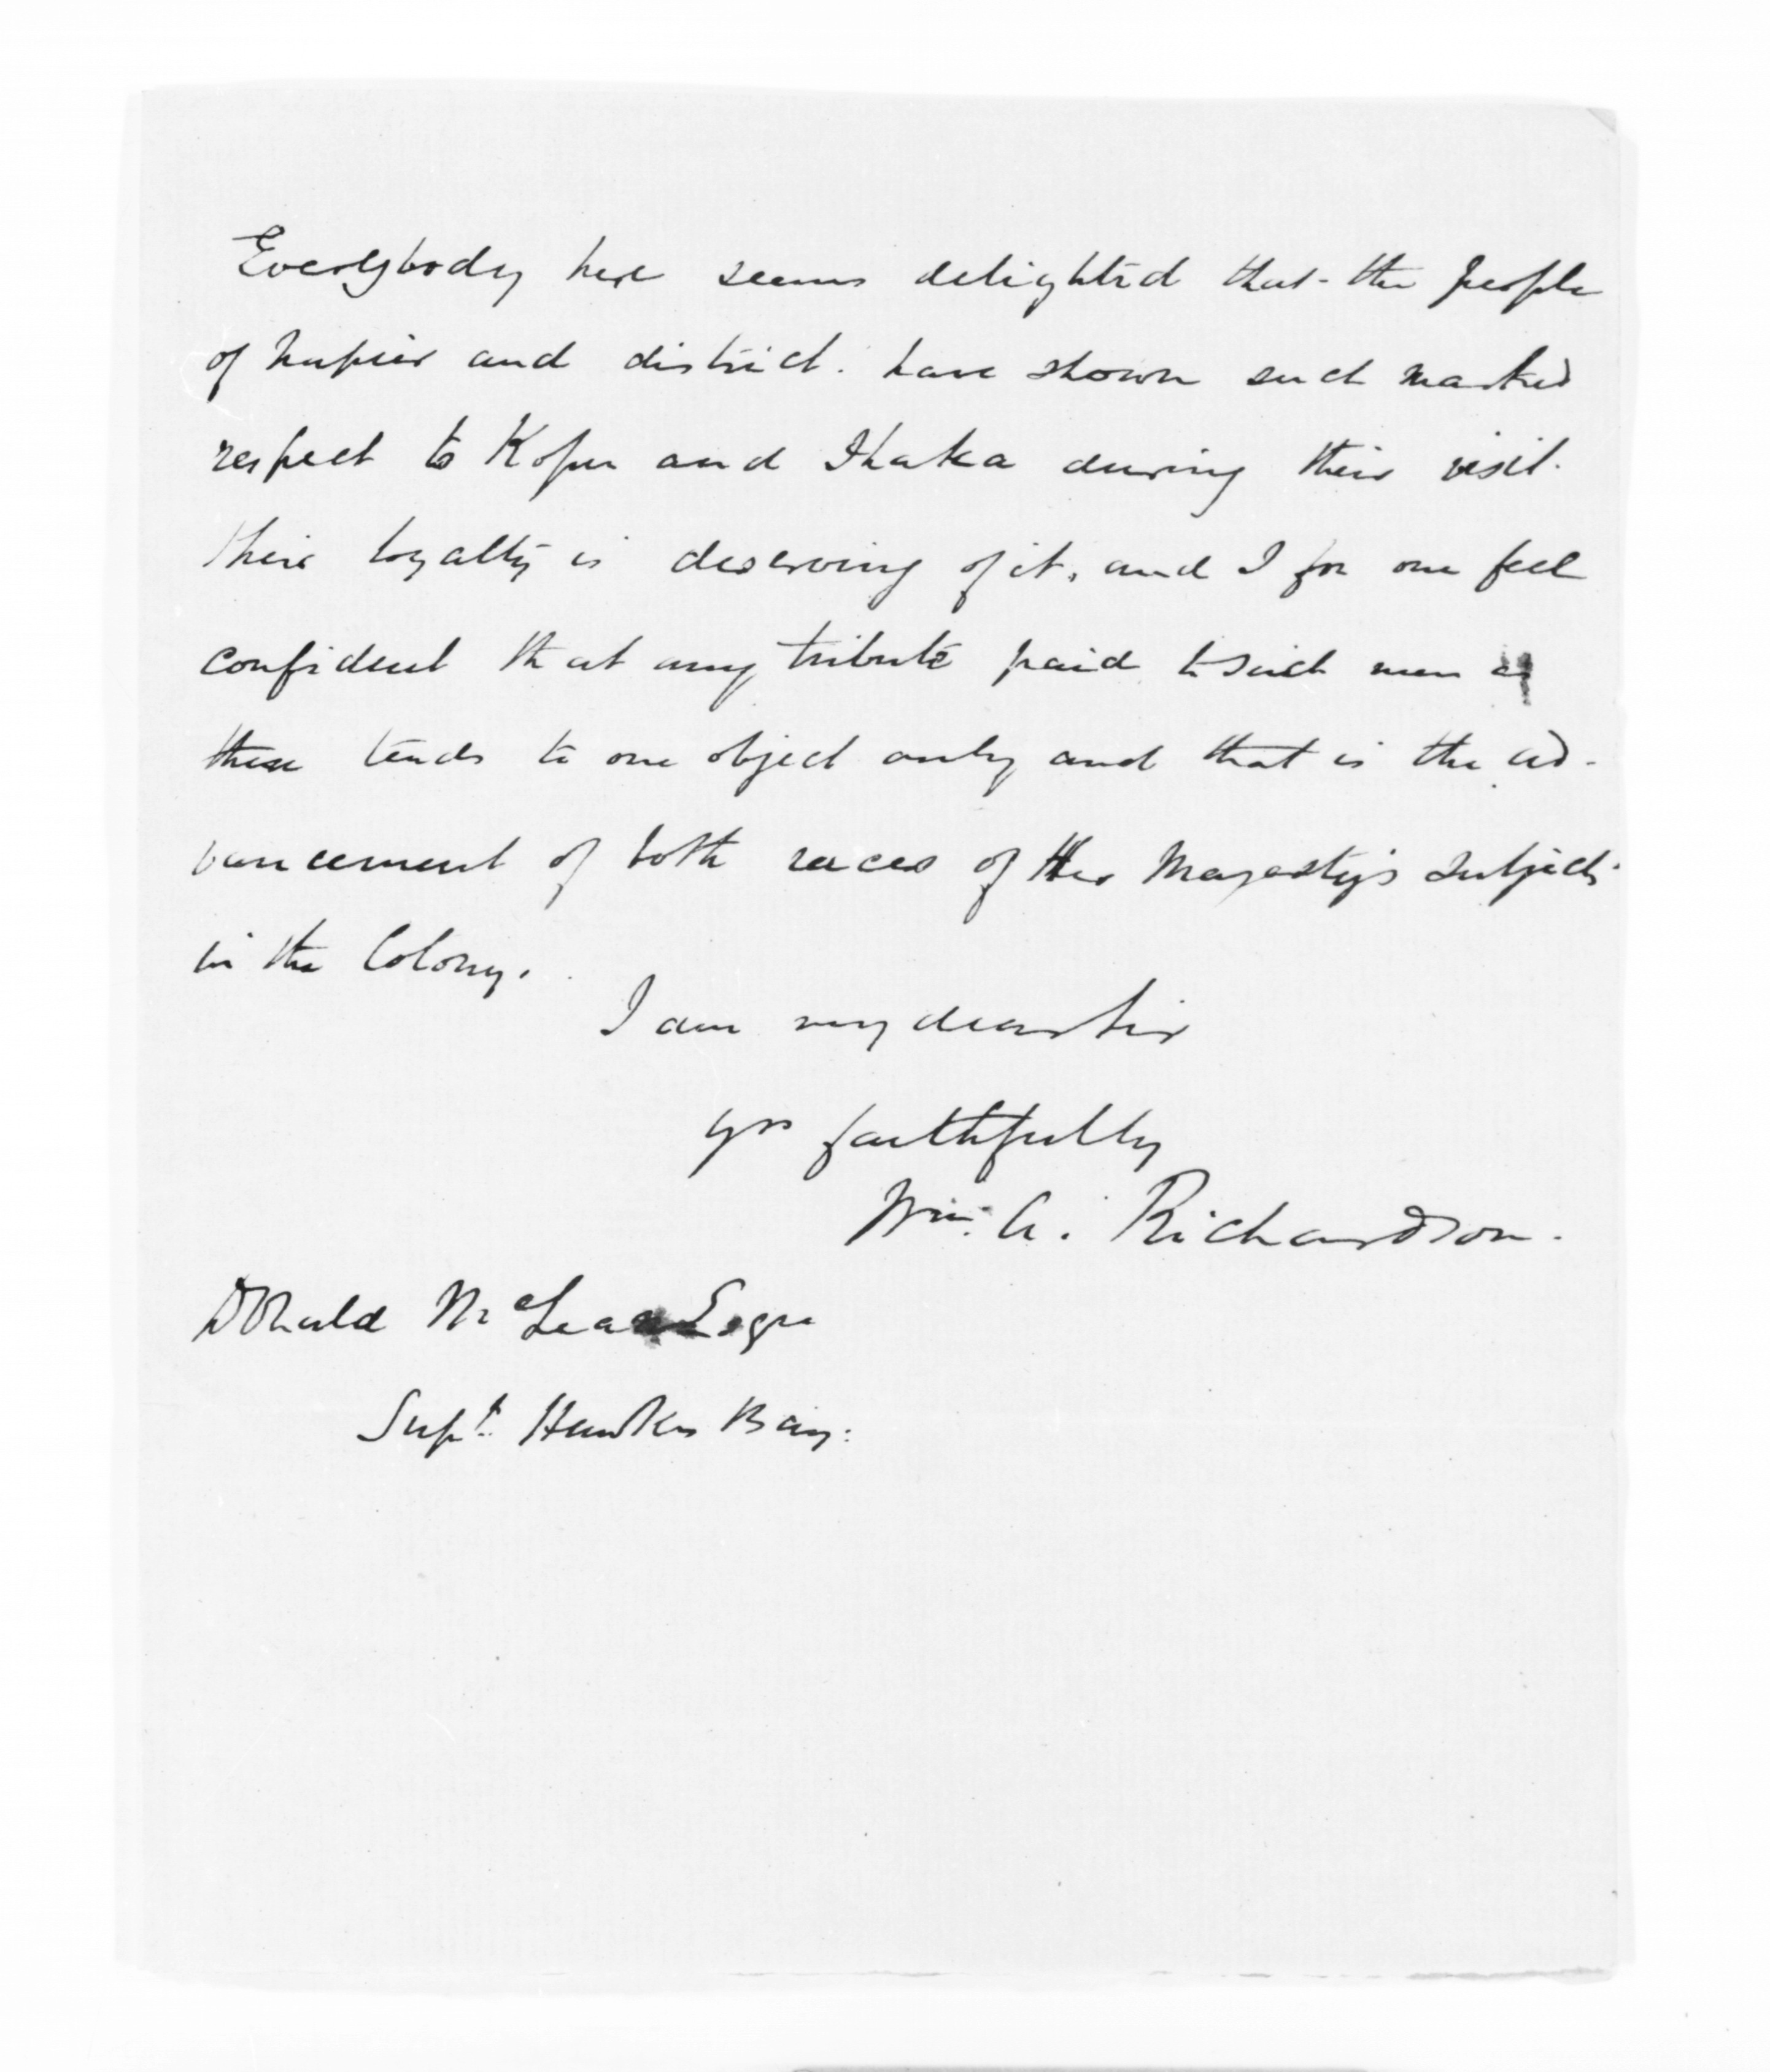 Everybody here seems delighted that the people
of Napier and district. have shown such marked
respect to Kopu and Ihaka during their visit.
their loyalty is deserving of it, and I for one feel
confident that any tribute paid to such men as
these tends to one object only and that is the ad-
vancement of both races of Her Majesty's subjects
in the Colony.
I am my dear Sir
yrs faithfully
Wm. A. Richardson.
Donald McLean Esqre
Supt. Hawkes Bay.